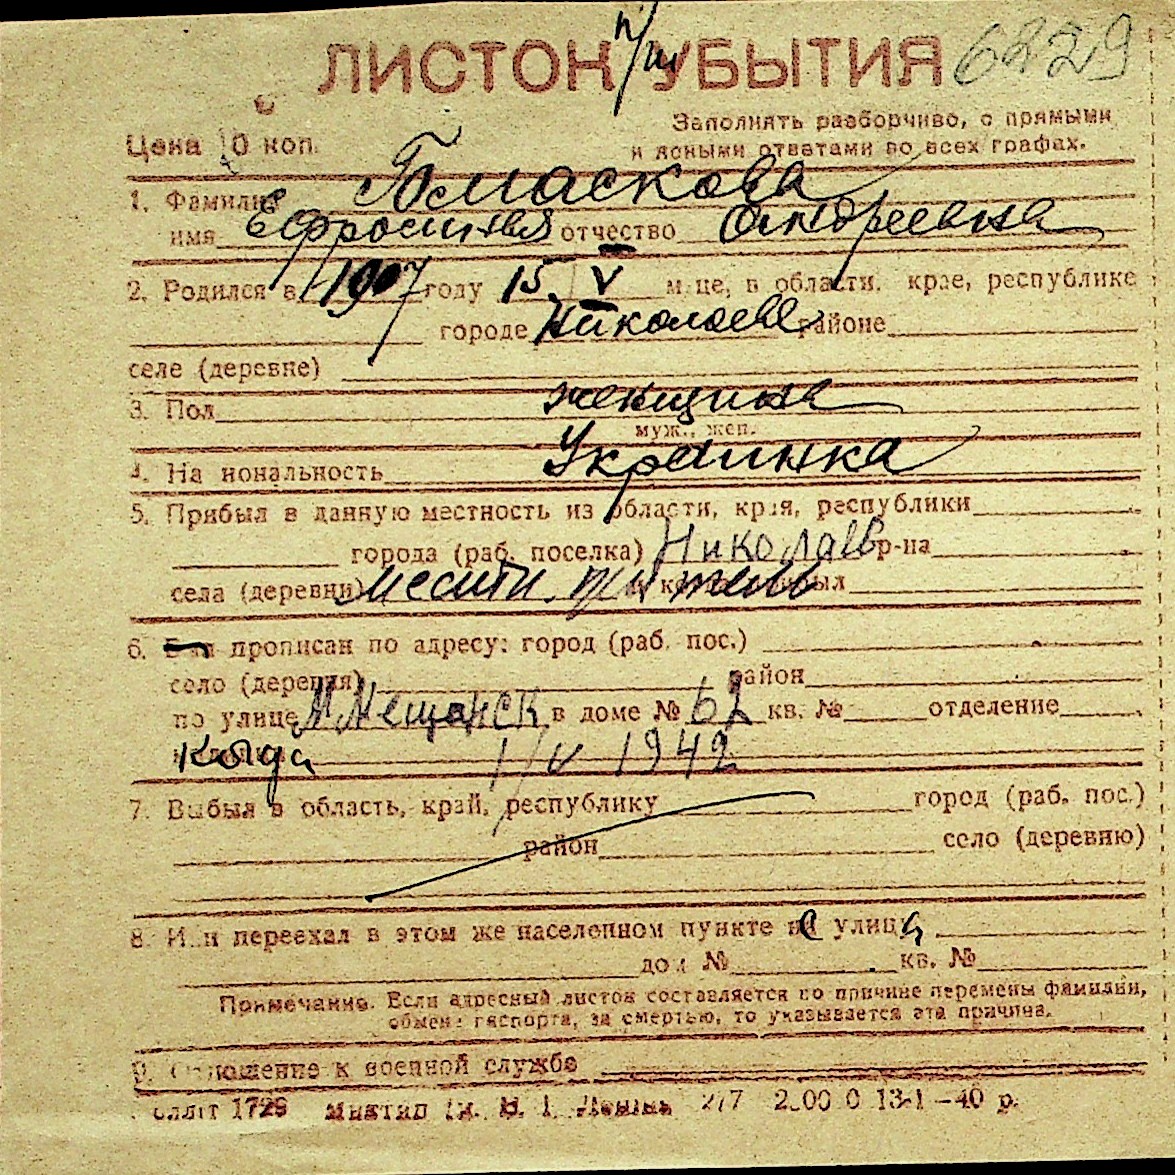 ЛИСТОК УБЫТИЯ 6229
п/ш
Заполнять разборчиво, с прямыми
Цена 10 коп. и ясными ответами во всех графах.
1. Фамилия
имя Ефросиния отчество Андреевна
2. Родился в 1907 году 15 V м-це, в области, крае, республике
городе Николаеве районе
селе (деревне)
3. Пол женщина
муж., жен.
4. Национальность Украинка
5. Прибыл в данную местность из области, края, республики
города (раб. поселка) Николаев р-на
села (деревни) местн. житель
6. Был прописан по адресу: город (раб. пос.)
село (деревня) район
по улице М. Мещанск в доме № 62 кв. № отделение
Когда 1/V 1942
7. Выбыл в область, край, республику город (раб. пос.)
район село (деревню)
8. Или переехал в этом же населенном пункте на улицу
дом № кв. №
Примечание. Если адресный листок составляется по причине перемены фамилии,
обмена паспорта, за смертью, то указывается эта причина.
9. Отношение к военной службе
1729 13-1-40 р.